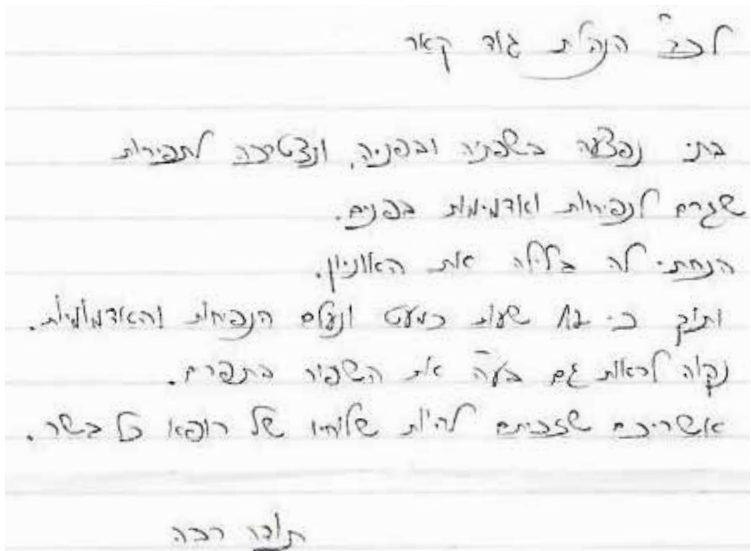 לכב' הנהלת גוד קאר
בתי נפצעה בשפתיה ובפניה, ונצטרכה לתפירות
שגרם לנפיחות ואדמימות בפנים.
הנחתי לה בלילה את האוניון.
ותוך כ- 12 שעות כמעט ונעלם הנפיחות והאדמומיות.
נקוה לראות גם בע"ה את השפור בתפרים.
אשריכם שזכיתם להיות שלוחיו של רופא כל בשר.
תודה רבה